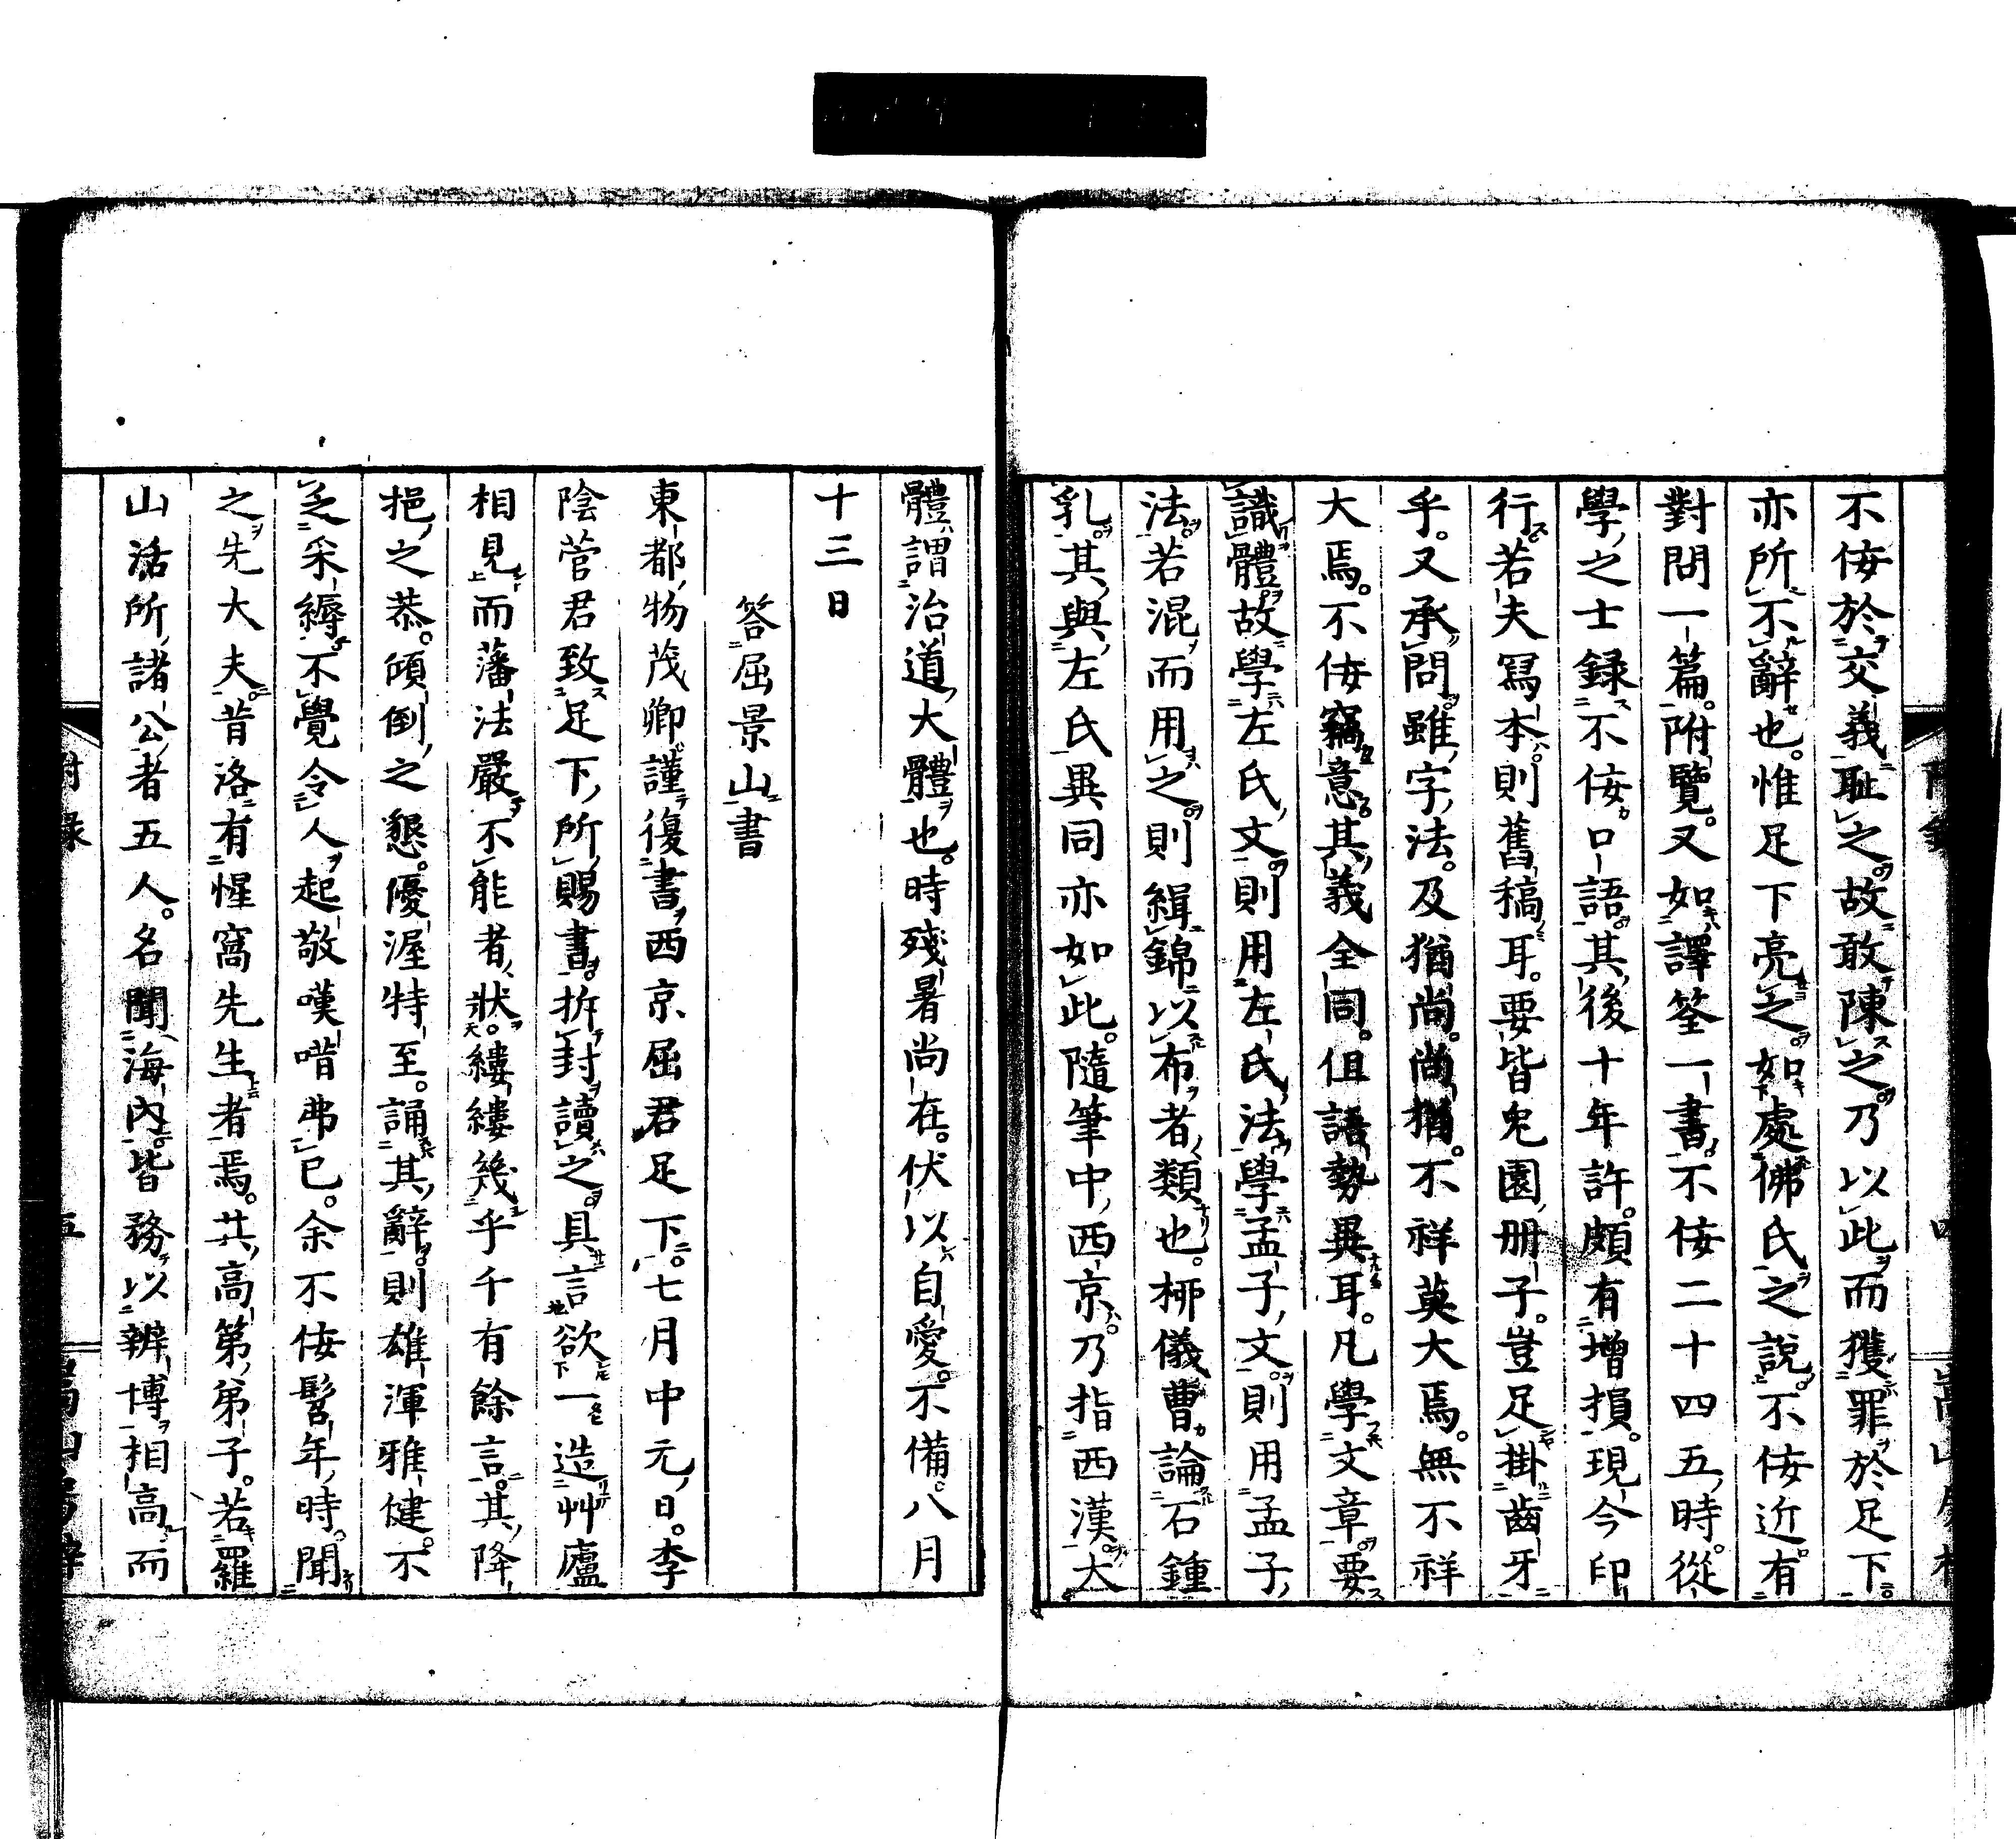 不侫於交義耻之故敢陳之乃以此而獲罪於足下
亦所不辭也惟足下亮之如處佛氏之說不侫近有
對問一篇附覽又如譯筌一書不侫二十四五時從
學之士録不侫口語其後十年許頗有増損現今印
行若夫冩本則舊稿耳要皆兎園册子豈足掛齒牙
乎又承問雖字法及猶尚尚猶不祥莫大焉無不祥
大焉不侫竊意其義全同但語勢異耳凡學文章要
識體故學左氏文則用左氏法學孟子文則用孟子
法若混而用之則緝錦以布者類也柳儀曹論石鍾
乳其與左氏異同亦如此隨筆中西京乃指西漢大
體謂治道大體也時殘暑尚在伏以自愛不備八月
十三日
答屈景山書
東都物茂卿謹復書西京屈君足下七月中元日李
陰菅君致足下所賜書拆封讀之具言欲一造艸廬
相見而藩法嚴不能者狀縷縷幾乎千有餘言其降
挹之恭傾倒之懇優渥特至誦其辭則雄渾雅健不
乏采縟不覺令人起敬嘆喈弗已余不侫髫年時聞
之先大夫昔洛有惺窩先生者焉其高第弟子若羅
山活所諸公者五人名聞海内皆務以辨博相高而